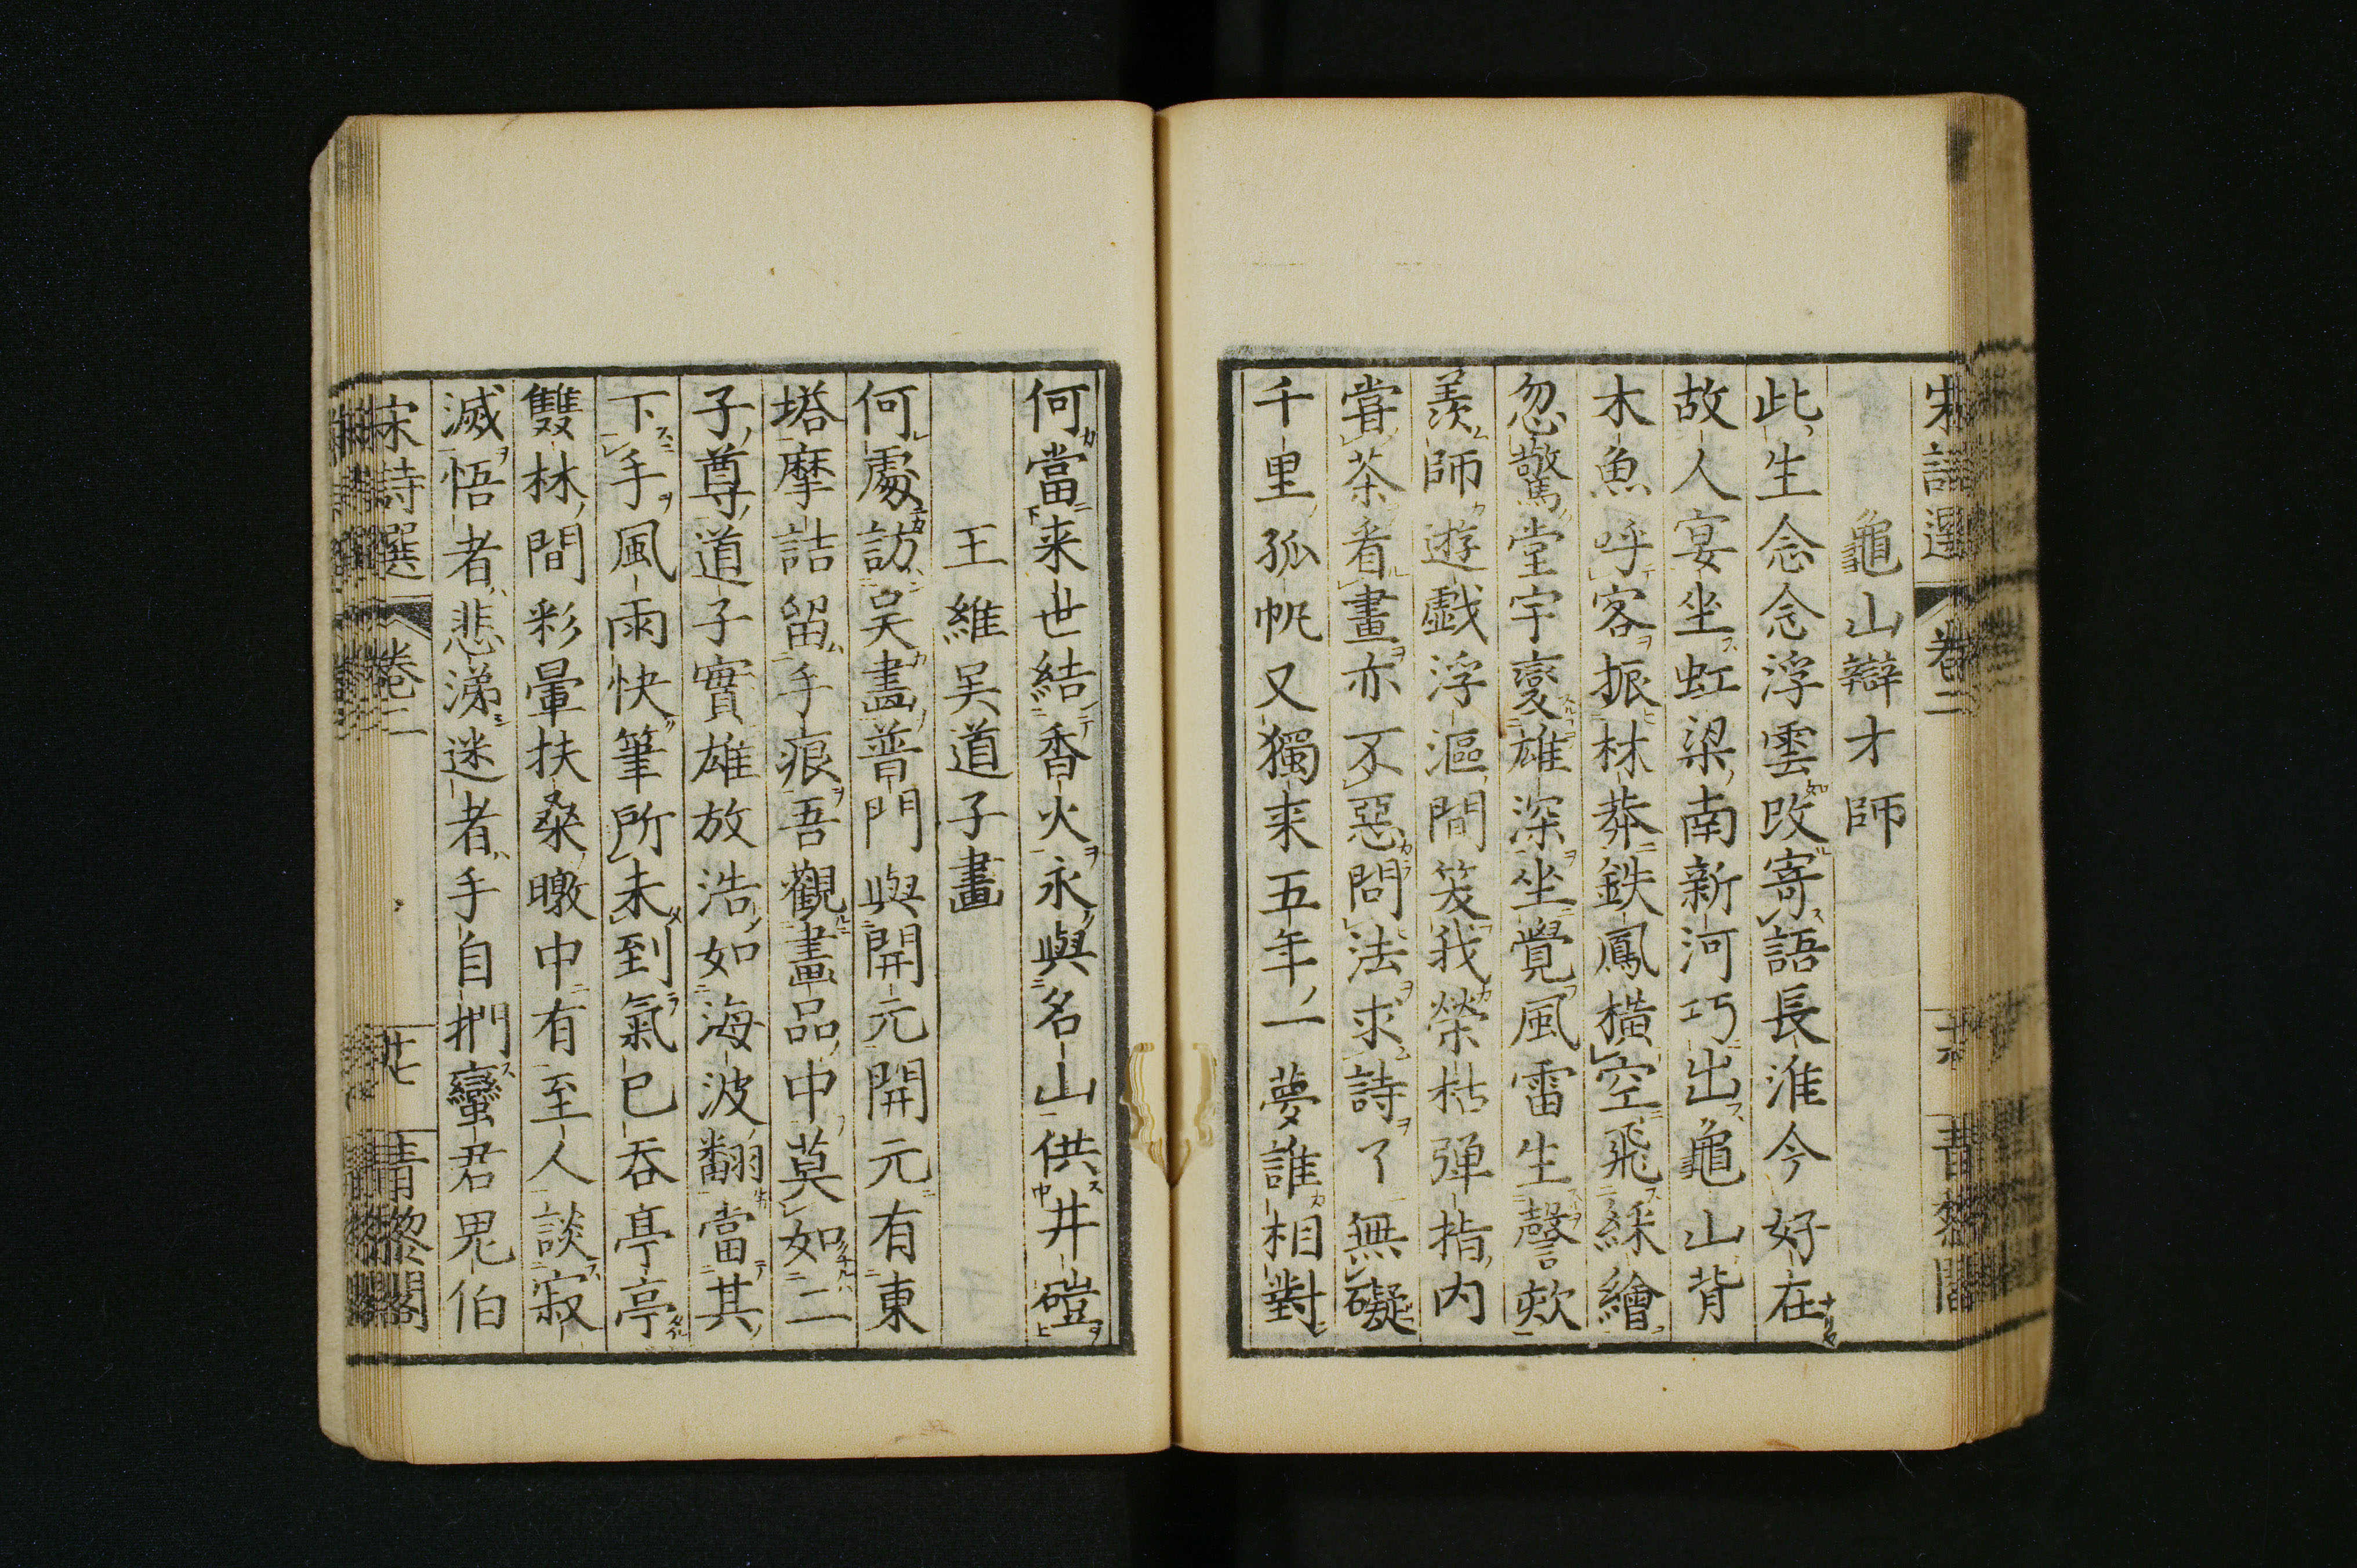 宋詩選 卷二 廿六 青黎閣
龜山辯才師
此生念念浮雲改寄語長淮今好在
故人宴坐虹梁南新河巧出龜山背
木魚呼客振林莽鉄鳳橫空飛綵繪
忽驚堂宇変雄深坐覺風雷生謦欬
羨師遊戯浮漚間笑我榮枯弾指内
甞茶看畫亦不惡問法求詩了無礙
千里孤帆又獨来五年一夢誰相對
何當来世結香火永與名山供井磑
王維吴道子畫
何處訪吴畫普門與開元開元有東
塔摩詰留手痕吾觀畫品中莫如二
子尊道子實雄放浩如海波翻當其
下手風雨快筆所未到氣已吞亭亭
雙林間彩暈扶桑暾中有至人談寂
滅悟者悲涕迷者手自捫蠻君鬼伯
宋詩選 卷二 廿七 青黎閣